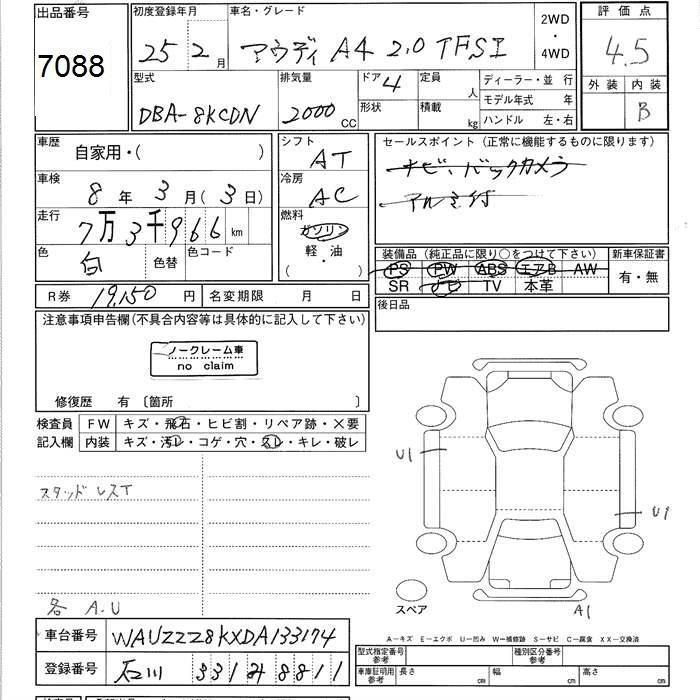 出品番号
7088
初度登録年月 25 2月
車名・グレード
アウディ A4 2.0 TFSI
2WD ・ 4WD
評価点
4.5
外装 内装
B
型式
DBA-8KCDN
排気量
2000 CC
ドア 4
形状
定員 人
積載 kg
ディーラー・並 行
モデル年式 年
ハンドル 左・右
車歴
自家用・( )
車検
8年 3月(3日)
走行
7万3千966 km
色
白
色替
色コード
シフト
AT
冷房
AC
燃料
ガソリン
軽・油
( )
セールスポイント (正常に機能するものに限ります)
ナビ、バックカメラ
アルミ付
装備品 (純正品に限り○をつけて下さい)
PS PW ABS エアB AW
SR ナビ TV 本革
新車保証書
有・無
R券 19,150 円
名変期限 月 日
後日品
注意事項申告欄(不具合内容等は具体的に記入して下さい)
ノークレーム車
no claim
修復歴 有 〔箇所 〕
検査員記入欄
FW キズ・飛石・ヒビ割・リペア跡・×要
内装 キズ・汚レ・コゲ・穴・スレ・キレ・破レ
スタッドレスT
各 A.U
U1
U1
A1
スペア
A-キズ E-エクボ U-凹み W-補修跡 S-サビ C-腐食 XX-交換済
車台番号 WAUZZZ8KXDA133174
登録番号 石川 331 8811
型式指定番号 参考
種別区分番号 参考
車庫証明用 参考
長さ cm
幅 cm
高さ cm